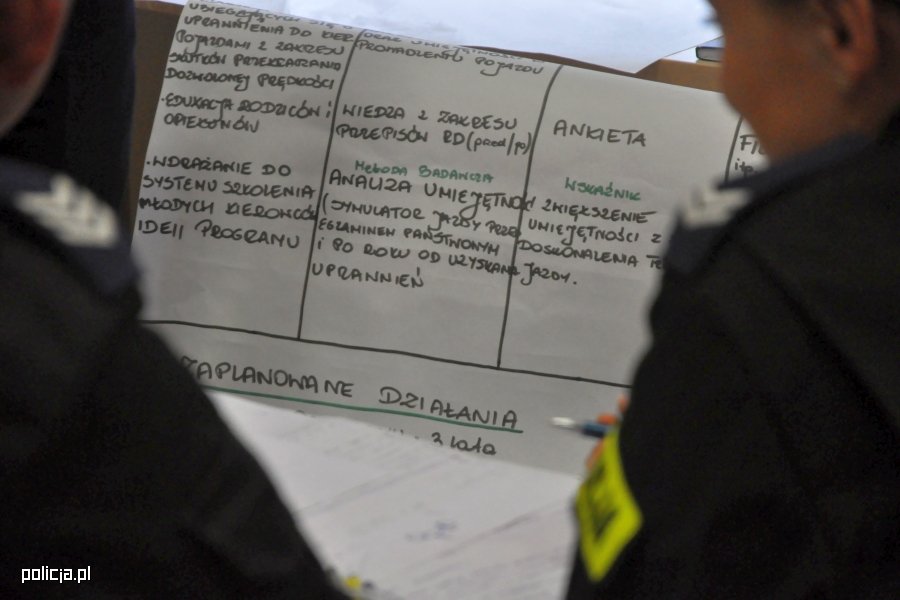 UBIEGAJĄCYCH SIĘ O
UPRAWNIENIA DO KIER.
POJAZDAMI Z ZAKRESU
SKUTKÓW PRZEKRACZANIA
DOZWOLONEJ PRĘDKOŚCI
·EDUKACJA RODZICÓW i
OPIEKUNÓW
·WDRAŻANIE DO
SYSTEMU SZKOLENIA
MŁODYCH KIEROWCÓW
IDEII PROGRAMU
ORAZ UMIEJĘTNOŚCI W
PROWADZENIU POJAZDU
WIEDZA Z ZAKRESU
PRZEPISÓW RD (przed/po)
METODA BADAWCZA
ANALIZA UMIEJĘTNOŚCI
(SYMULATOR JAZDY PRZED
EGZAMINEM PAŃSTWOWYM
i PO ROKU OD UZYSKANIA
UPRAWNIEŃ
ANKIETA
WSKAŹNIK
ZWIĘKSZENIE
UMIEJĘTNOŚCI Z
DOSKONALENIA TE
JAZDY.
ZAPLANOWANE DZIAŁANIA
3 lata
policja.pl